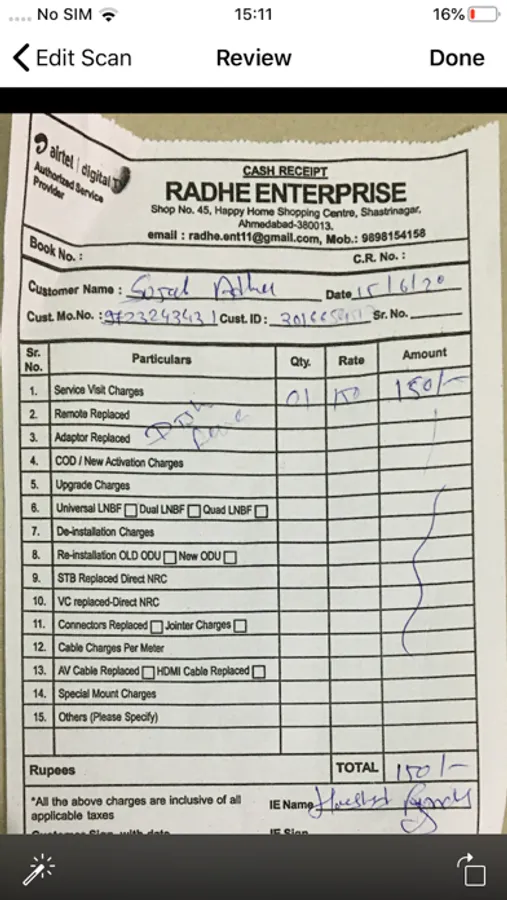 No SIM 15:11 16%
Edit Scan Review Done
airtel | digital TV
Authorized Service
Provider
CASH RECEIPT
RADHE ENTERPRISE
Shop No. 45, Happy Home Shopping Centre, Shastrinagar,
Ahmedabad-380013.
email : radhe.ent11@gmail.com, Mob.: 9898154158
Book No. : C.R. No. :
Customer Name : Date 15/6/20
Cust. Mo.No. : Cust. ID : Sr. No.
Sr. No. Particulars Qty. Rate Amount
1. Service Visit Charges 01 150 150/-
2. Remote Replaced
3. Adaptor Replaced
4. COD / New Activation Charges
5. Upgrade Charges
6. Universal LNBF Dual LNBF Quad LNBF
7. De-installation Charges
8. Re-installation OLD ODU New ODU
9. STB Replaced Direct NRC
10. VC replaced-Direct NRC
11. Connectors Replaced Jointer Charges
12. Cable Charges Per Meter
13. AV Cable Replaced HDMI Cable Replaced
14. Special Mount Charges
15. Others (Please Specify)
Rupees TOTAL 150/-
*All the above charges are inclusive of all
applicable taxes
IE Name
Customer Sign. with date IE Sign